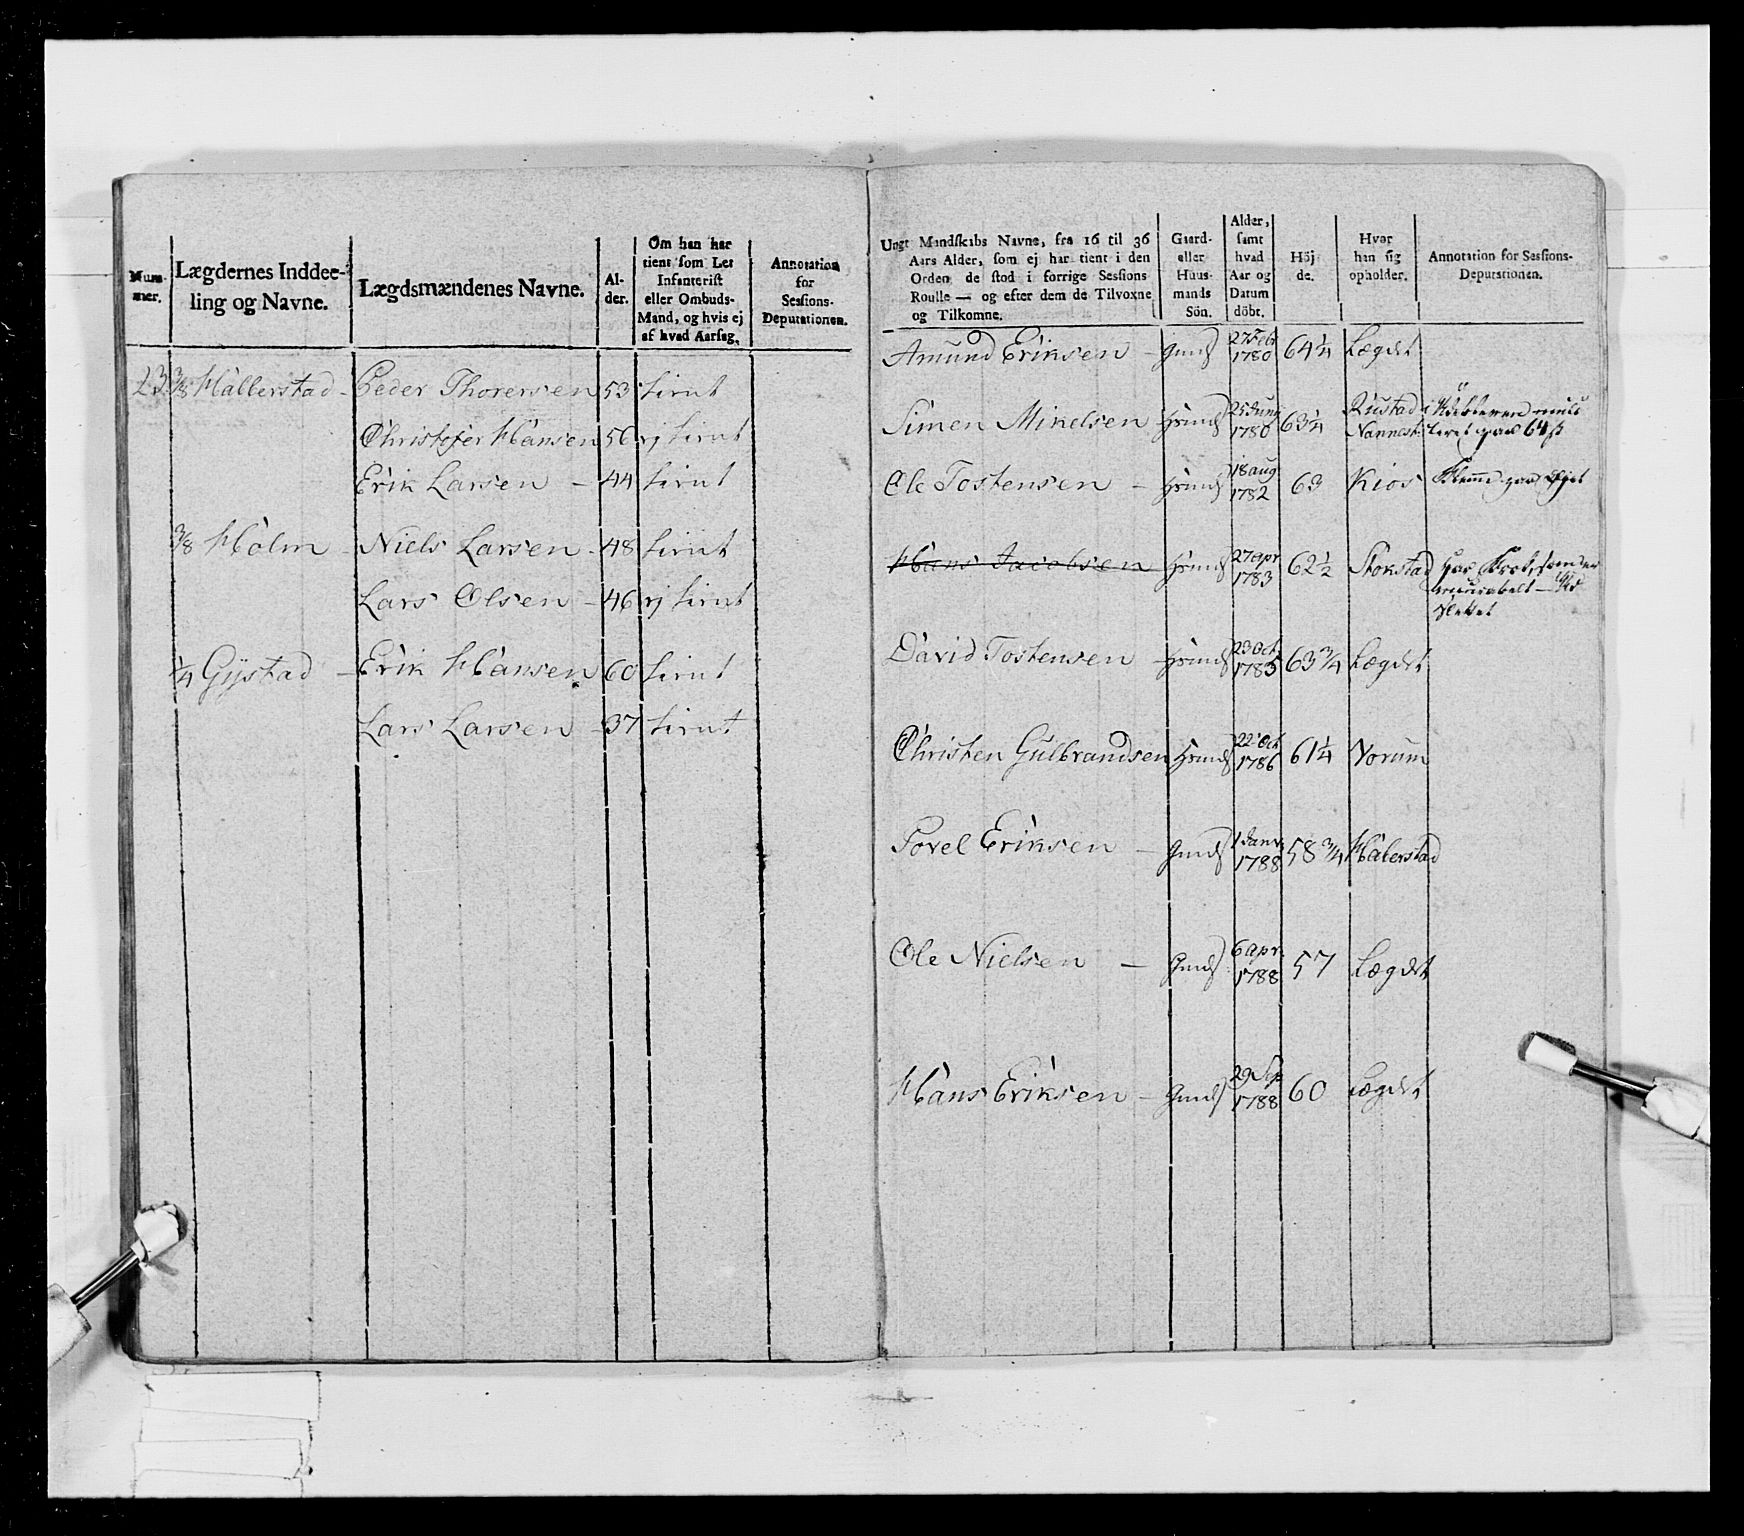 Num-
mer.
Lægdernes Inddee-
ling og Navne.
Lægdsmændenes Navne.
Al-
der.
Om han har
tient som Let
Infanterist
eller Ombuds-
Mand, og hvis ej
af hvad Aarsag.
Annotation
for
Sessions-
Deputationen.
23 3/8 Halberstad - Peder Thorersen 53 tient
Christofer Hansen 56 ej tient
Erik Larsen - 44 tient
3/8 Holm - Niels Larsen - 48 tient
Lars Olsen - 46 ej tient
1/4 Gystad - Erik Hansen 60 tient
Lars Larsen - 37 tient
Ungt Mandskabs Navne, fra 16 til 36
Aars Alder, som ej har tient i den
Orden de stod i forrige Sessions
Roulle — og efter dem de Tilvoxne
og Tilkomne.
Gaard-
eller
Huus-
mands
Sön.
Alder,
samt
hvad
Aar og
Datum
döbt.
Höj
de.
Hvor
han sig
opholder.
Annotation for Sessions-
Deputationen.
Amund Eriksen - Gmds 27 Febr 1780 64 1/4 Lægdet
Simen Mikelsen - Hsmds 25 Juny 1780 63 1/4 Rustad i Nannest:
har 64
Ole Tostensen - Hsmds 18 aug 1782 63 Kios
har
Hans Jacobsen Hsmds 27 apr 1783 62 1/2 Stokstad har
incurabelt —
Slettet
David Tostensen - Hsmds 23 Oct 1785 63 3/4 Lægdet
Christen Gulbrandsen Hsmds 22 Oct 1786 61 1/4 Norum
Povel Eriksen - Gmds 1 Janv. 1788 58 3/4 Halberstad
Ole Nielsen - Gmds 6 apr. 1788 57 Lægdet
Hans Eriksen - Gmds 29 Sep 1788 60 Lægdet